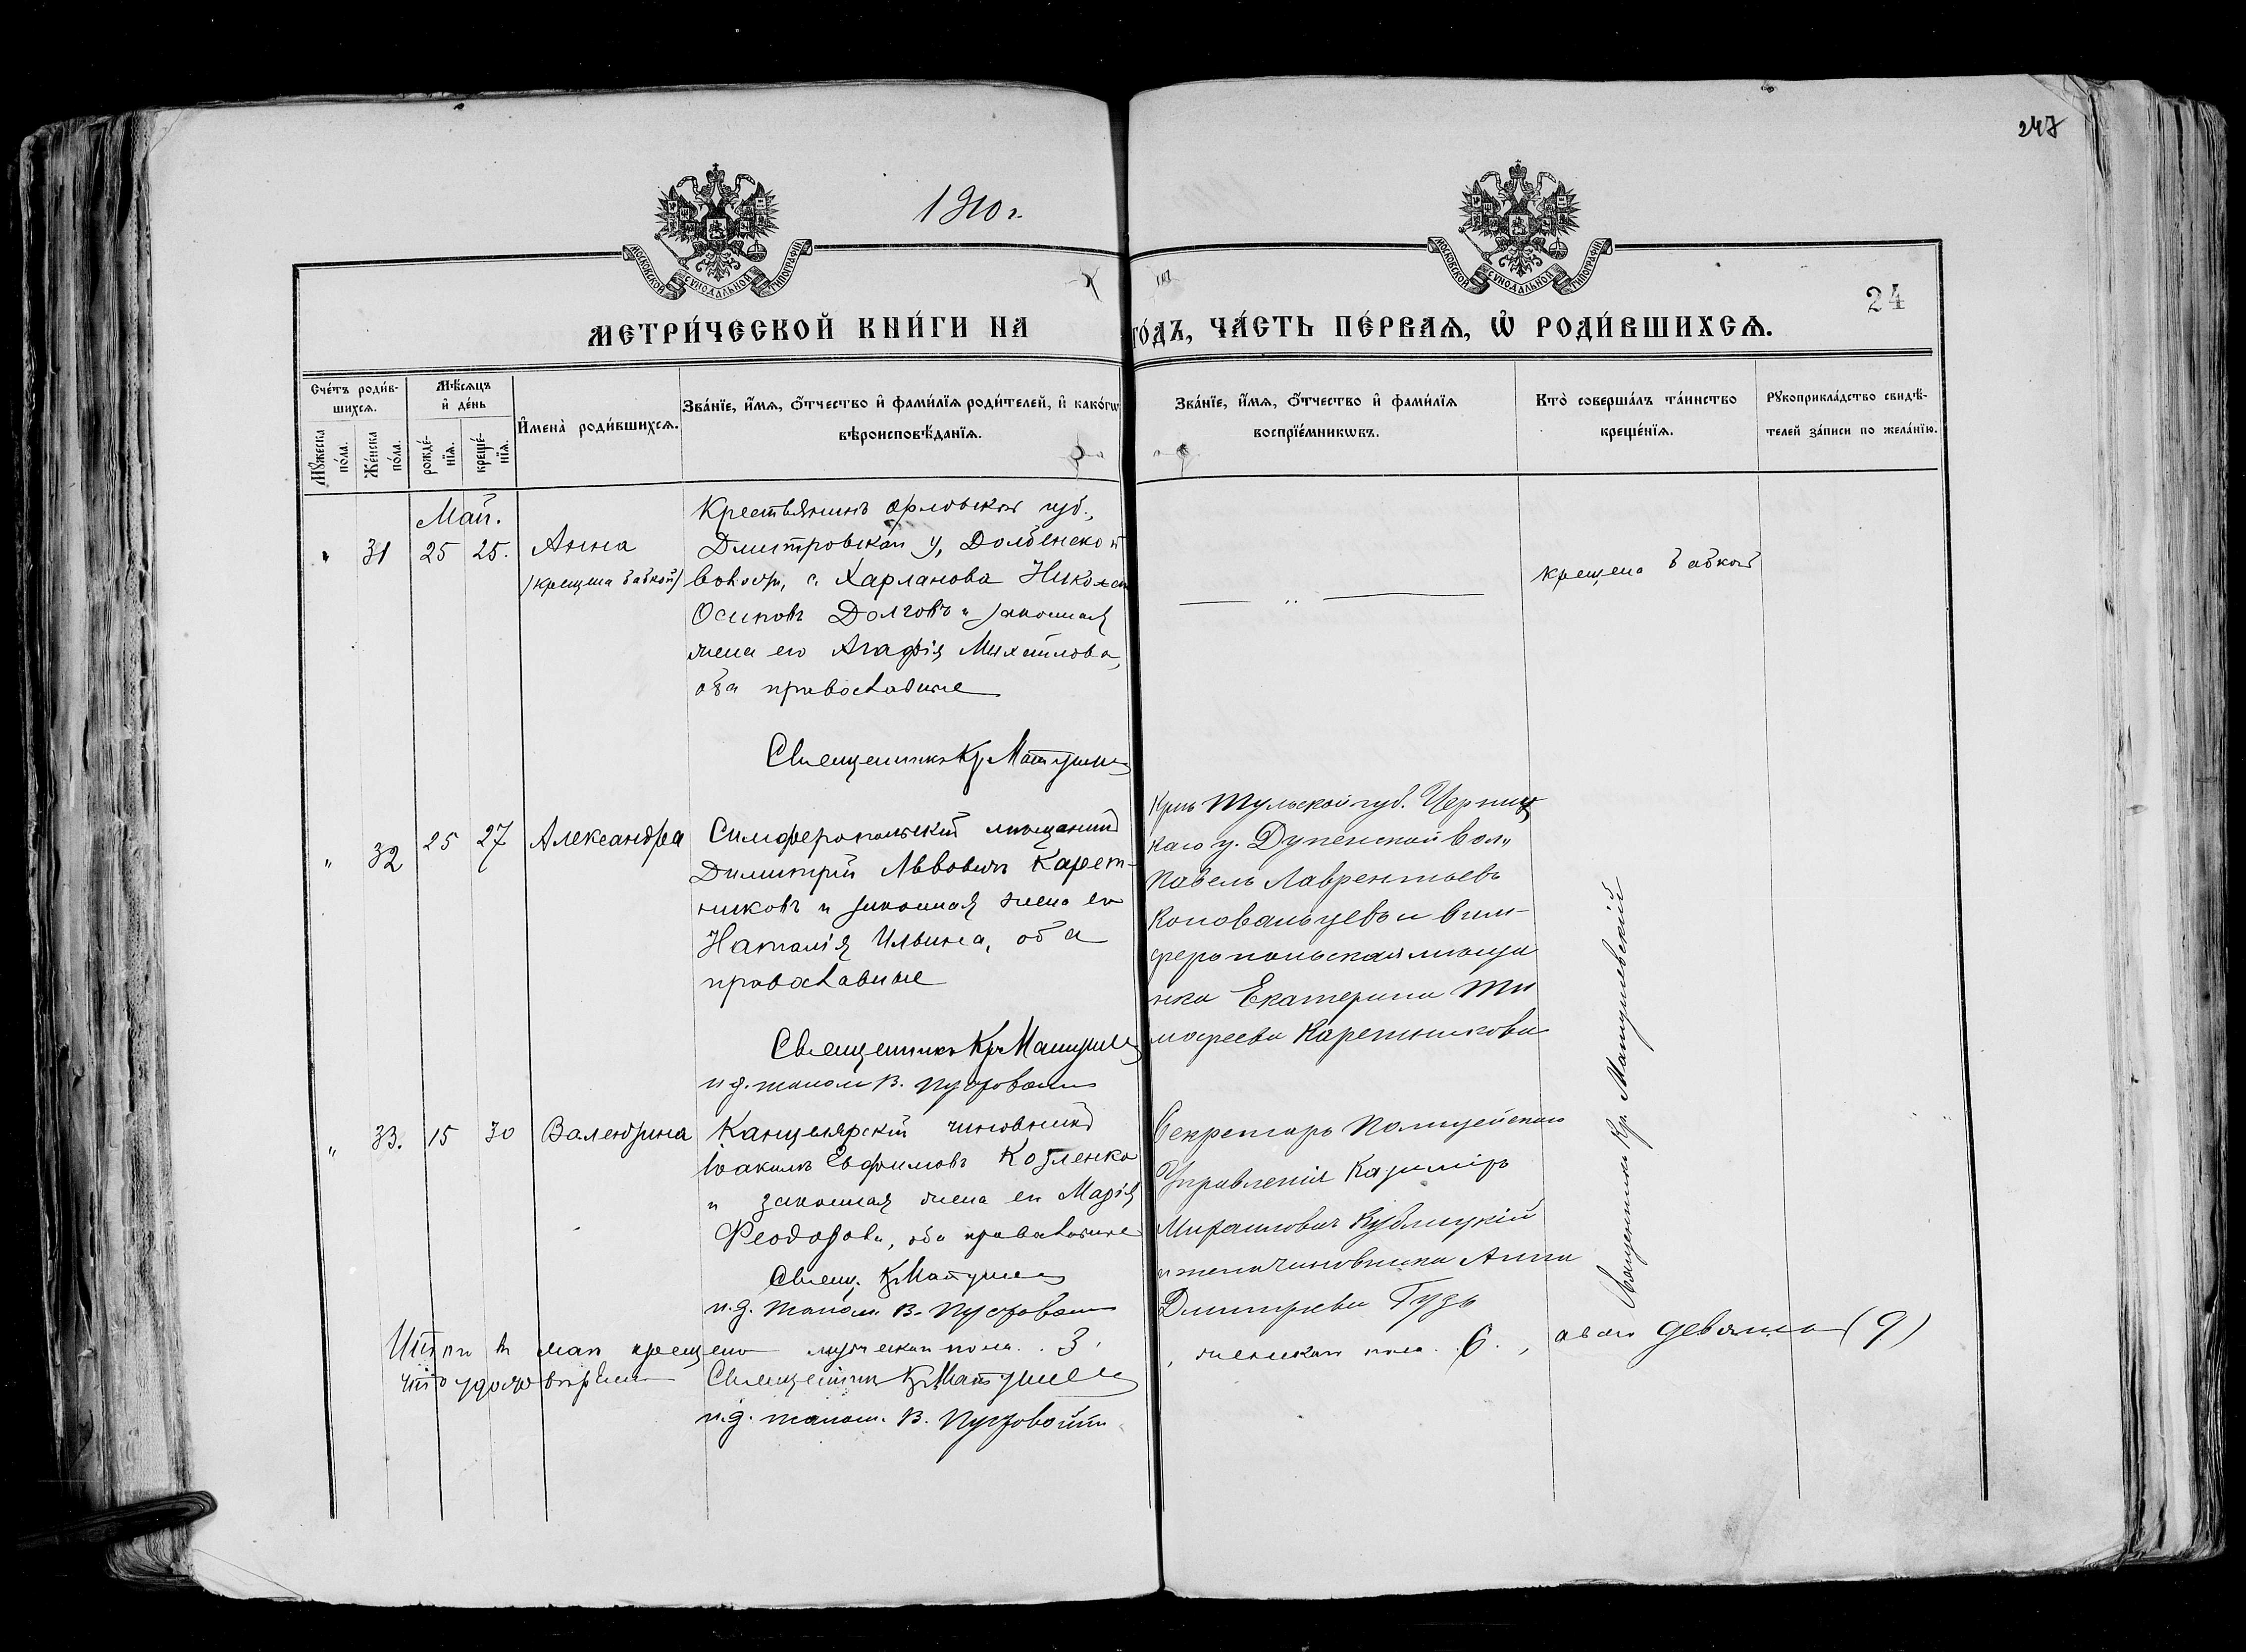 247
1910 г.
МОСКОВСКОЙ СѴНОДАЛЬНОЙ ТИПОГРАФІИ
МОСКОВСКОЙ СѴНОДАЛЬНОЙ ТИПОГРАФІИ
24
МЕТРИ́ЧЕСКОЙ КНИ́ГИ НА ГО́ДЪ, ЧА́СТЬ ПЕ́РВАѦ, Ѡ҆ РОДИ́ВШИХСѦ.
Сче́тъ роди́в-
шихсѧ.
Мѹ́жеска по́ла.
Же́нска по́ла.
Мѣ́сѧцъ
и҆ де́нь
рожде́-
нїѧ.
креще́-
нїѧ.
И҆мена̀ роди́вшихсѧ.
Зва́нїе, и҆́мѧ, ѻ҆́тчество и҆ фами́лїѧ роди́телей, и҆ како́гѡ
вѣроисповѣ́данїѧ.
Зва́нїе, и҆́мѧ, ѻ҆́тчество и҆ фами́лїѧ
воспрїе́мникѡвъ.
Кто̀ соверша́лъ та́инство
креще́нїѧ.
Рꙋкоприкла́дство свидѣ́-
телей за́писи по жела́нїю.
Май.
" 31 25 25. Анна
(крещена бабкой)
Крестьянинъ Орловской губ.,
Дмитровскаго у., Долбенской
волости, с. Харланова Николай
Осиповъ Долговъ и законная
жена его Агафія Михайлова,
оба православные
Священникъ Кр. Матушев
— " —
крещена бабкой
" 32 25 27 Александра
Симферопольскій мѣщанинъ
Димитрій Львовичъ Карет-
никовъ и законная жена его
Наталія Ильина, оба
православные
Священникъ Кр. Матушев
и. д. псалом. В. Пустовойт
Крнъ Тульской губ. Чернск
каго у. вол.
Павелъ Лаврентьевъ
Коновальцевъ и Сим-
феропольская мѣща
нка Екатерина Ти
мофеева Каретникова
" 33. 15 30 Валентина
Канцелярскій чиновникъ
Іоакимъ Евфимовъ Козленко
и законная жена его Марія
Феодорова, оба православные
Свящ. Кр. Матушев
и. д. псалом. В. Пустовойт
Секретарь Полицейскаго
Управленія Казиміръ
Михаиловичъ Кублицкій
и жена чиновника Анна
Димитріева Гузь
Священникъ Кр. Матушевскій
Итого въ маѣ крещено мужескаго пола . . 3, женскаго пола . . 6., обоего девять (9)
что удостовѣряем Священникъ Кр. Матушев
и. д. псалом. В. Пустовойт